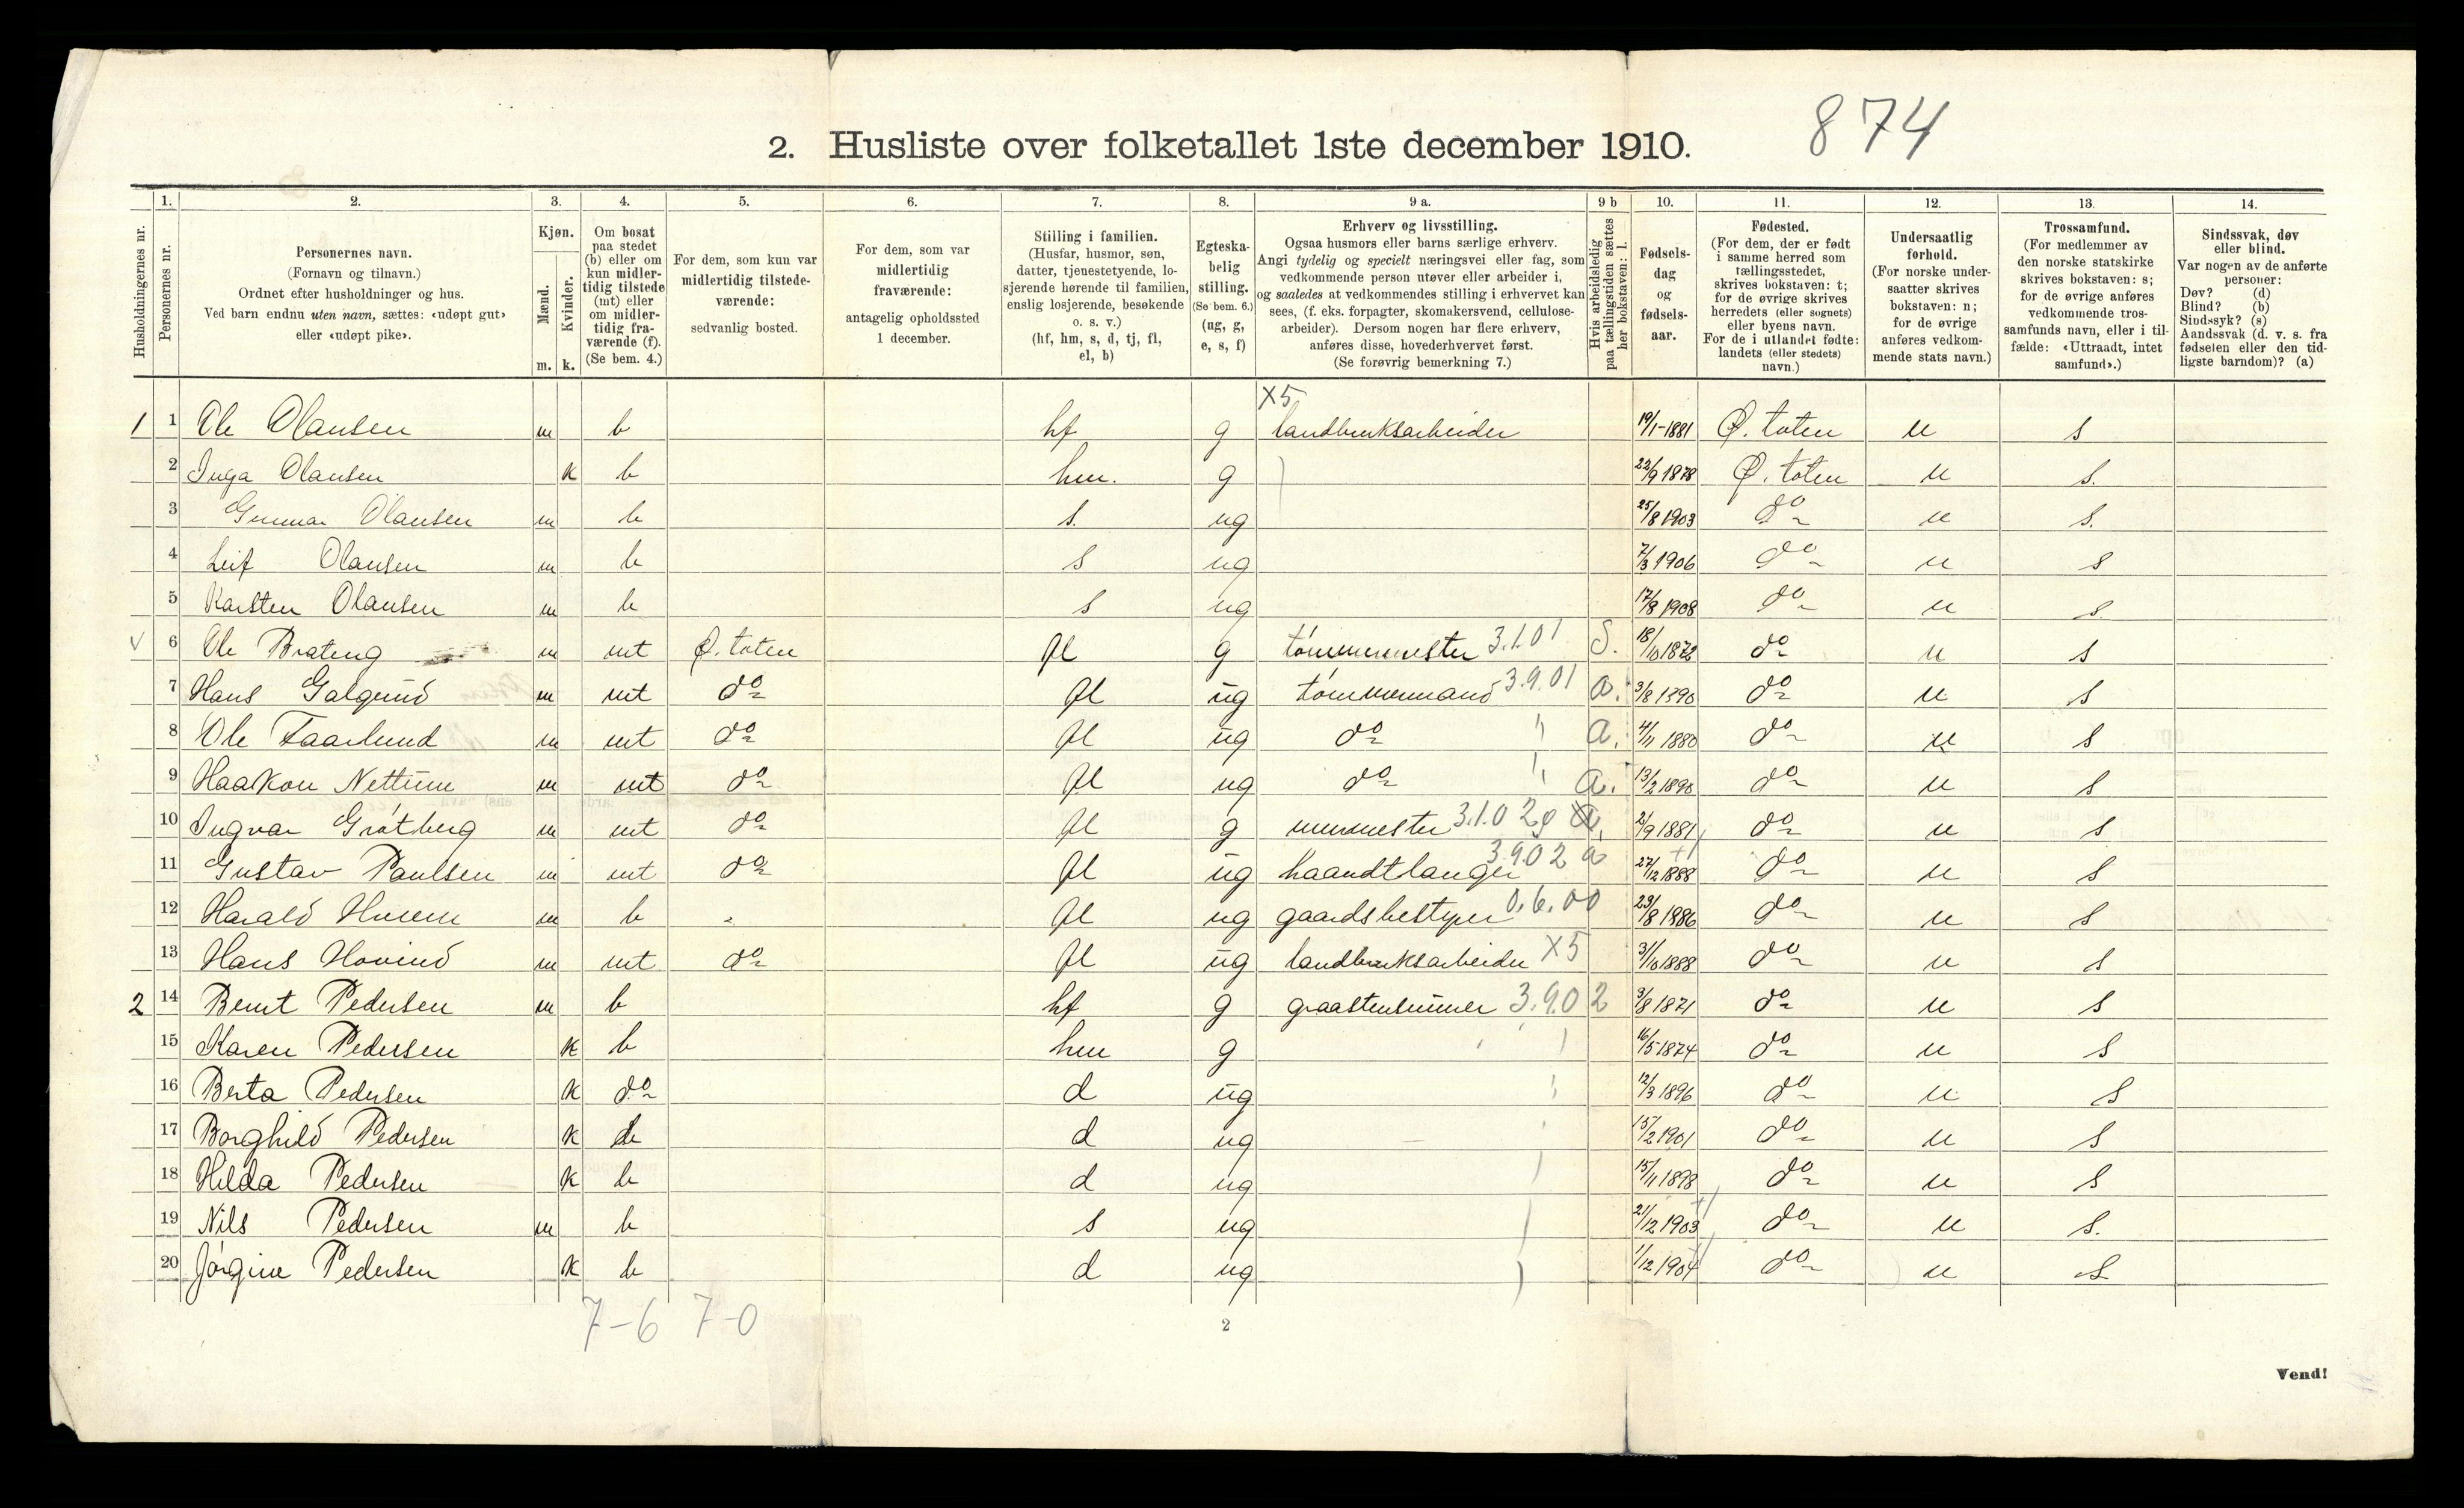 874
2. Husliste over folketallet 1ste december 1910.
Husholdningernes nr.
1. Personernes nr.
2. Personernes navn.
(Fornavn og tilnavn.)
Ordnet efter husholdninger og hus.
Ved barn endnu uten navn, sættes: «udøpt gut»
eller «udøpt pike».
3. Kjøn.
Mænd. m.
Kvinder. k.
4. Om bosat
paa stedet
(b) eller om
kun midler-
tidig tilstede
(mt) eller
om midler-
tidig fra-
værende (f).
(Se bem. 4.)
5. For dem, som kun var
midlertidig tilstede-
værende:
sedvanlig bosted.
6. For dem, som var
midlertidig
fraværende:
antagelig opholdssted
1 december.
7. Stilling i familien.
(Husfar, husmor, søn,
datter, tjenestetyende, lo-
sjerende hørende til familien,
enslig losjerende, besøkende
o. s. v.)
(hf, hm, s, d, tj, fl,
el, b)
8. Egteska-
belig
stilling.
(Se bem. 6.)
(ug, g,
e, s, f)
9 a. Erhverv og livsstilling.
Ogsaa husmors eller barns særlige erhverv.
Angi tydelig og specielt næringsvei eller fag, som
vedkommende person utøver eller arbeider i,
og saaledes at vedkommendes stilling i erhvervet kan
sees, (f. eks. forpagter, skomakersvend, cellulose-
arbeider). Dersom nogen har flere erhverv,
anføres disse, hovederhvervet først.
(Se forøvrig bemerkning 7.)
9 b Hvis arbeidsledig
paa tællingstiden sættes
her bokstaven: l.
10. Fødsels-
dag
og
fødsels-
aar.
11. Fødested.
(For dem, der er født
i samme herred som
tællingsstedet,
skrives bokstaven: t;
for de øvrige skrives
herredets (eller sognets)
eller byens navn.
For de i utlandet fødte:
landets (eller stedets)
navn.)
12. Undersaatlig
forhold.
(For norske under-
saatter skrives
bokstaven: n;
for de øvrige
anføres vedkom-
mende stats navn.)
13. Trossamfund.
(For medlemmer av
den norske statskirke
skrives bokstaven: s;
for de øvrige anføres
vedkommende tros-
samfunds navn, eller i til-
fælde: «Uttraadt, intet
samfund».)
14. Sindssvak, døv
eller blind.
Var nogen av de anførte
personer:
Døv? (d)
Blind? (b)
Sindssyk? (s)
Aandssvak (d. v. s. fra
fødselen eller den tid-
ligste barndom)? (a)
X5
1 1 Ole Olausen m b hf g landbruksarbeider 19/1-1881 Ø. toten n s
2 Inga Olausen k b hm. g 22/9 1878 Ø. toten n s.
3 Gunnar Olausen m b s. ug 25/8 1903 do n s.
4 Leif Olausen m b s ug 7/3 1906 do n s
5 Karsten Olausen m b s ug 17/8 1908 do n s
6 Ole Brateng m mt Ø. toten fl g tømmermester 3.1.01 S. 18/10 1872 do n s
7 Hans Galgund m mt do fl ug tømmermand 3.9.01 a. 3/8 1890 do n s
8 Ole Faarlund m mt do fl ug do " a. 4/11 1880 do n s
9 Haakon Nettum m mt do fl ug do " a. 13/2 1890 do n s
10 Ingvar Grøtberg m mt do fl g murmester 3.1.02 2/9 1881 do n s
11 Gustav Paulsen m mt do fl ug haandtlanger 3.9.02 a 27/12 1888 do n s
12 Harald Husem m b fl ug gaardsbestyrer 0.6.00 23/8 1886 do n s
13 Hans Hovind m mt do fl ug landbruksarbeider X5 31/10 1888 do n s
2 14 Bernt Pedersen m b hf g graastensmurer 3.9.02 3/8 1871 do n s
15 Karen Pedersen k b hm g 16/5 1874 do n s
16 Berta Pedersen k do d ug 12/3 1896 do n s
17 Borghild Pedersen k b d ug 15/2 1901 do n s
18 Hilda Pedersen k b d ug 15/11 1898 do n s
19 Nils Pedersen m b s ug 21/12 1903 do n s.
20 Jørgine Pedersen k b d ug 1/12 1904 do n s
7-6 7-0
2
Vend!